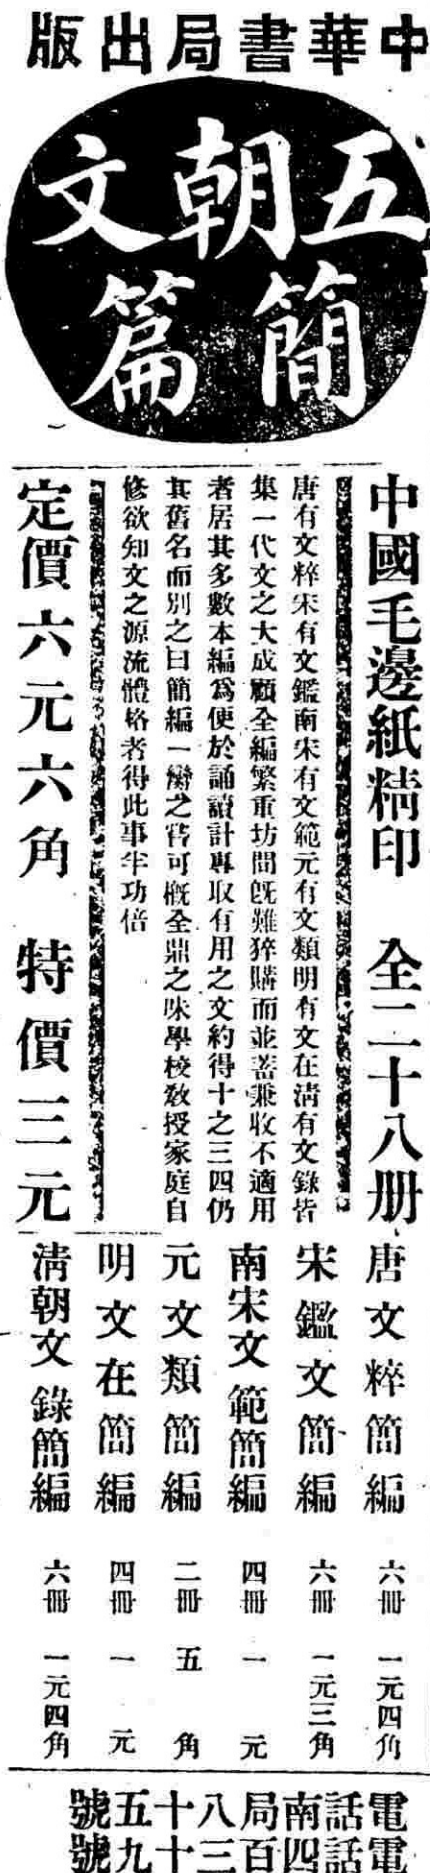 中華書局出版
五朝文
簡篇
中國毛邊紙精印　全二十八册
唐有文粹宋有文鑑南宋有文範元有文類明有文在淸有文錄皆
集一代文之大成顧全編繁重坊間旣難猝購而並蓄兼收不適用
者居其多數本編爲便於誦讀計專取有用之文約得十之三四仍
其舊名而別之曰簡編一臠之嘗可槪全鼎之味學校敎授家庭自
修欲知文之源流體格者得此事半功倍
定價六元六角　特價三元
唐文粹簡編　六冊　一元四角
宋鑑文簡編　六冊　一元三角
南宋文範簡編　四冊　一元
元文類簡編　二冊　五角
明文在簡編　四冊　一元
淸朝文錄簡編　六冊　一元四角
電話南局八十五號
電話四百三十九號